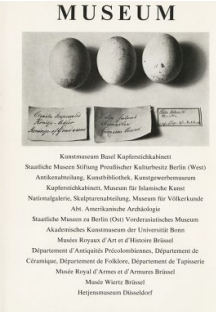 MUSEUM
Kunstmuseum Basel Kupferstichkabinett
Staatliche Museen Stiftung Preußischer Kulturbesitz Berlin (West)
Antikenabteilung, Kunstbibliothek, Kunstgewerbemuseum
Kupferstichkabinett, Museum für Islamische Kunst
Nationalgalerie, Skulpturenabteilung, Museum für Völkerkunde
Abt. Amerikanische Archäologie
Staatliche Museen zu Berlin (Ost) Vorderasiatisches Museum
Akademisches Kunstmuseum der Universität Bonn
Musées Royaux d'Art et d'Histoire Brüssel
Département d'Antiquités Précolombiennes, Département de
Céramique, Département de Folklore, Département de Tapisserie
Musée Royal d'Armes et d'Armures Brüssel
Musée Wiertz Brüssel
Hetjensmuseum Düsseldorf